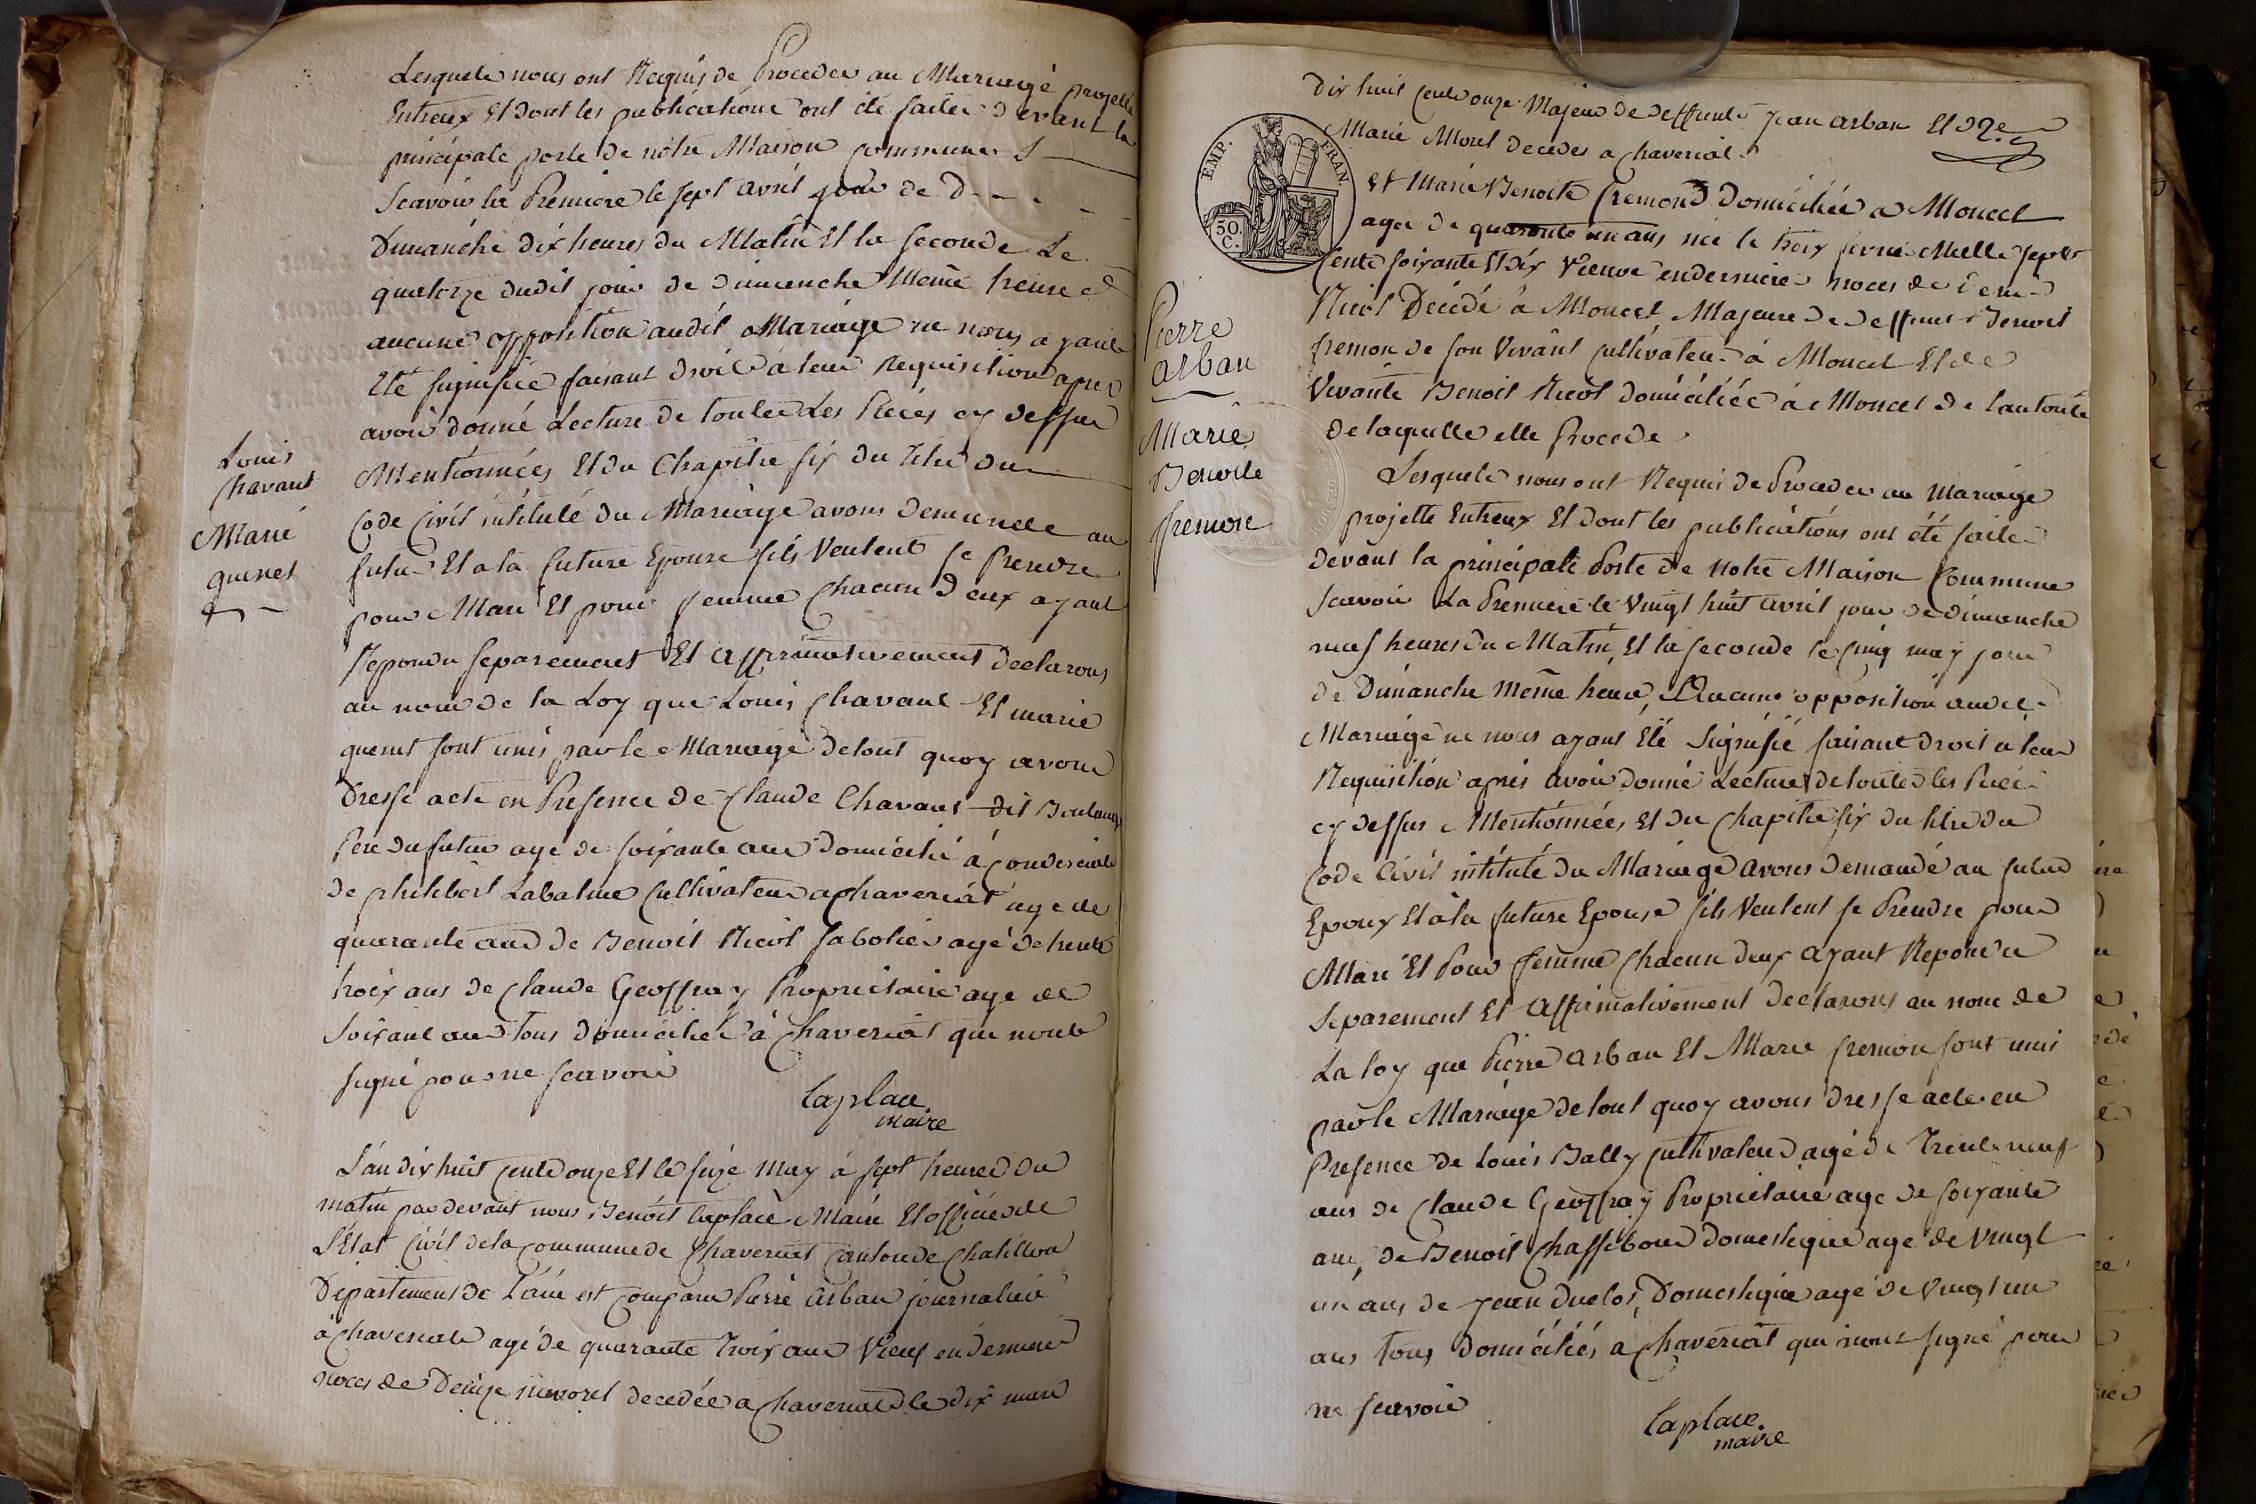 Lesquels nous ont Requis de Proceder au Mariage projetté
Entreux Et dont les publications ont été faites devant la
principale porte de nôtre Maison commune S
Scavoir la Premiere le sept avril jour de D
Dimanche dix heures du Matin Et la seconde Le
quatorze dudit jour de dimanche Même heure
aucune opposition audit Mariage ne nous ayant
Eté signifiée faisant droit a leur Requisition apres
avoir donné Lecture de toutes Les Pieces cy dessus
Mentionnées Et du Chapitre six du titre du
Code Civil intitulé du Mariage avons demandé au
futur Et a la future Epouse sils Veulent se Prendre
pour Mari Et pour femme chacun d'eux ayant
Repondu separement Et affirmativement declarons
au nom de la Loy que Louis Chavant Et marie
quenet sont unis par le Mariage de tout quoy avons
Dressé acte en Presence de Claude Chavant dit
Pere du futur agé de soixante ans domicilié à
de philibert Labalme Cultivateur a Chaveriat agé de
quarante ans de Benoit Nicol Sabotier agé de trente
troix ans de Claude Geoffray Proprietaire agé de
soixante ans tous domiciliés à Chaveriat qui nont
signé pour ne scavoir
Laplace
maire
Louis
Chavant
Marie
quenet
L'an dix huit cents onze Et le seize May à sept heures du
matin par devant nous Benoit Laplace Maire Et officier de
L'Etat Civil de la commune de Chaveriat canton de Chatillon
Departement de L'ain est comparu Pierre arban journalier
à Chaveriat agé de quarante Troix ans Veuf en derniere
noces de Denize decedée a Chaveriat le dix mars
dix huit cents onze Majeur de deffunts Jean arban Et de
Marie Morel decedes a Chaveriat
EMP. FRAN.
50. C.
Et Marie Benoite fremond Domiciliée a Moncet
agée de quarante un ans née le troix Mille sept
cents soixante Et dix Veuve en derniere noces de
Nicol Décédé à Moncet Majeure de deffunt Benoit
fremon de son Vivant cultivateur à Moncet Et de
Vivante Benoit Nicol domiciliée à Moncet de lautorité
de laquelle elle Procede
Pierre
arban
Marie
Benoite
fremon
Lesquels nous ont Requis de Proceder au Mariage
projetté Entreux Et dont les publications ont été faites
devant la principale Porte de Notre Maison Commune
Scavoir La Premiere le Vingt huit avril jour de dimanche
neuf heures du Matin, Et la seconde le cinq may jour
de Dimanche Même heure, Aucune opposition audit
Mariage ne nous ayant Eté signifié faisant droit a leur
Requisition après avoir donné Lecture de toutes les Pieces
cy dessus Mentionnées, Et du Chapitre six du titre du
Code Civil intitulé du Mariage avons demandé au futur
Epoux Et à la future Epouse sils Veulent se Prendre pour
Mari Et Pour femme chacun deux ayant Repondu
separement Et affirmativement declarons au nom de
La loy que Pierre arban Et Marie fremon sont unis
par le Mariage de tout quoy avons dressé acte en
Presence de Louis Bally cultivateur agé de Trente neuf
ans de Claude Geoffray Proprietaire agé de soixante
ans, de Benoit Chassibout domestique agé de Vingt
un ans, de Jean Duclos, Domestique agé de Vingt un
ans tous domiciliés a Chaveriat qui n'ont signé pour
ne scavoir
Laplace
maire